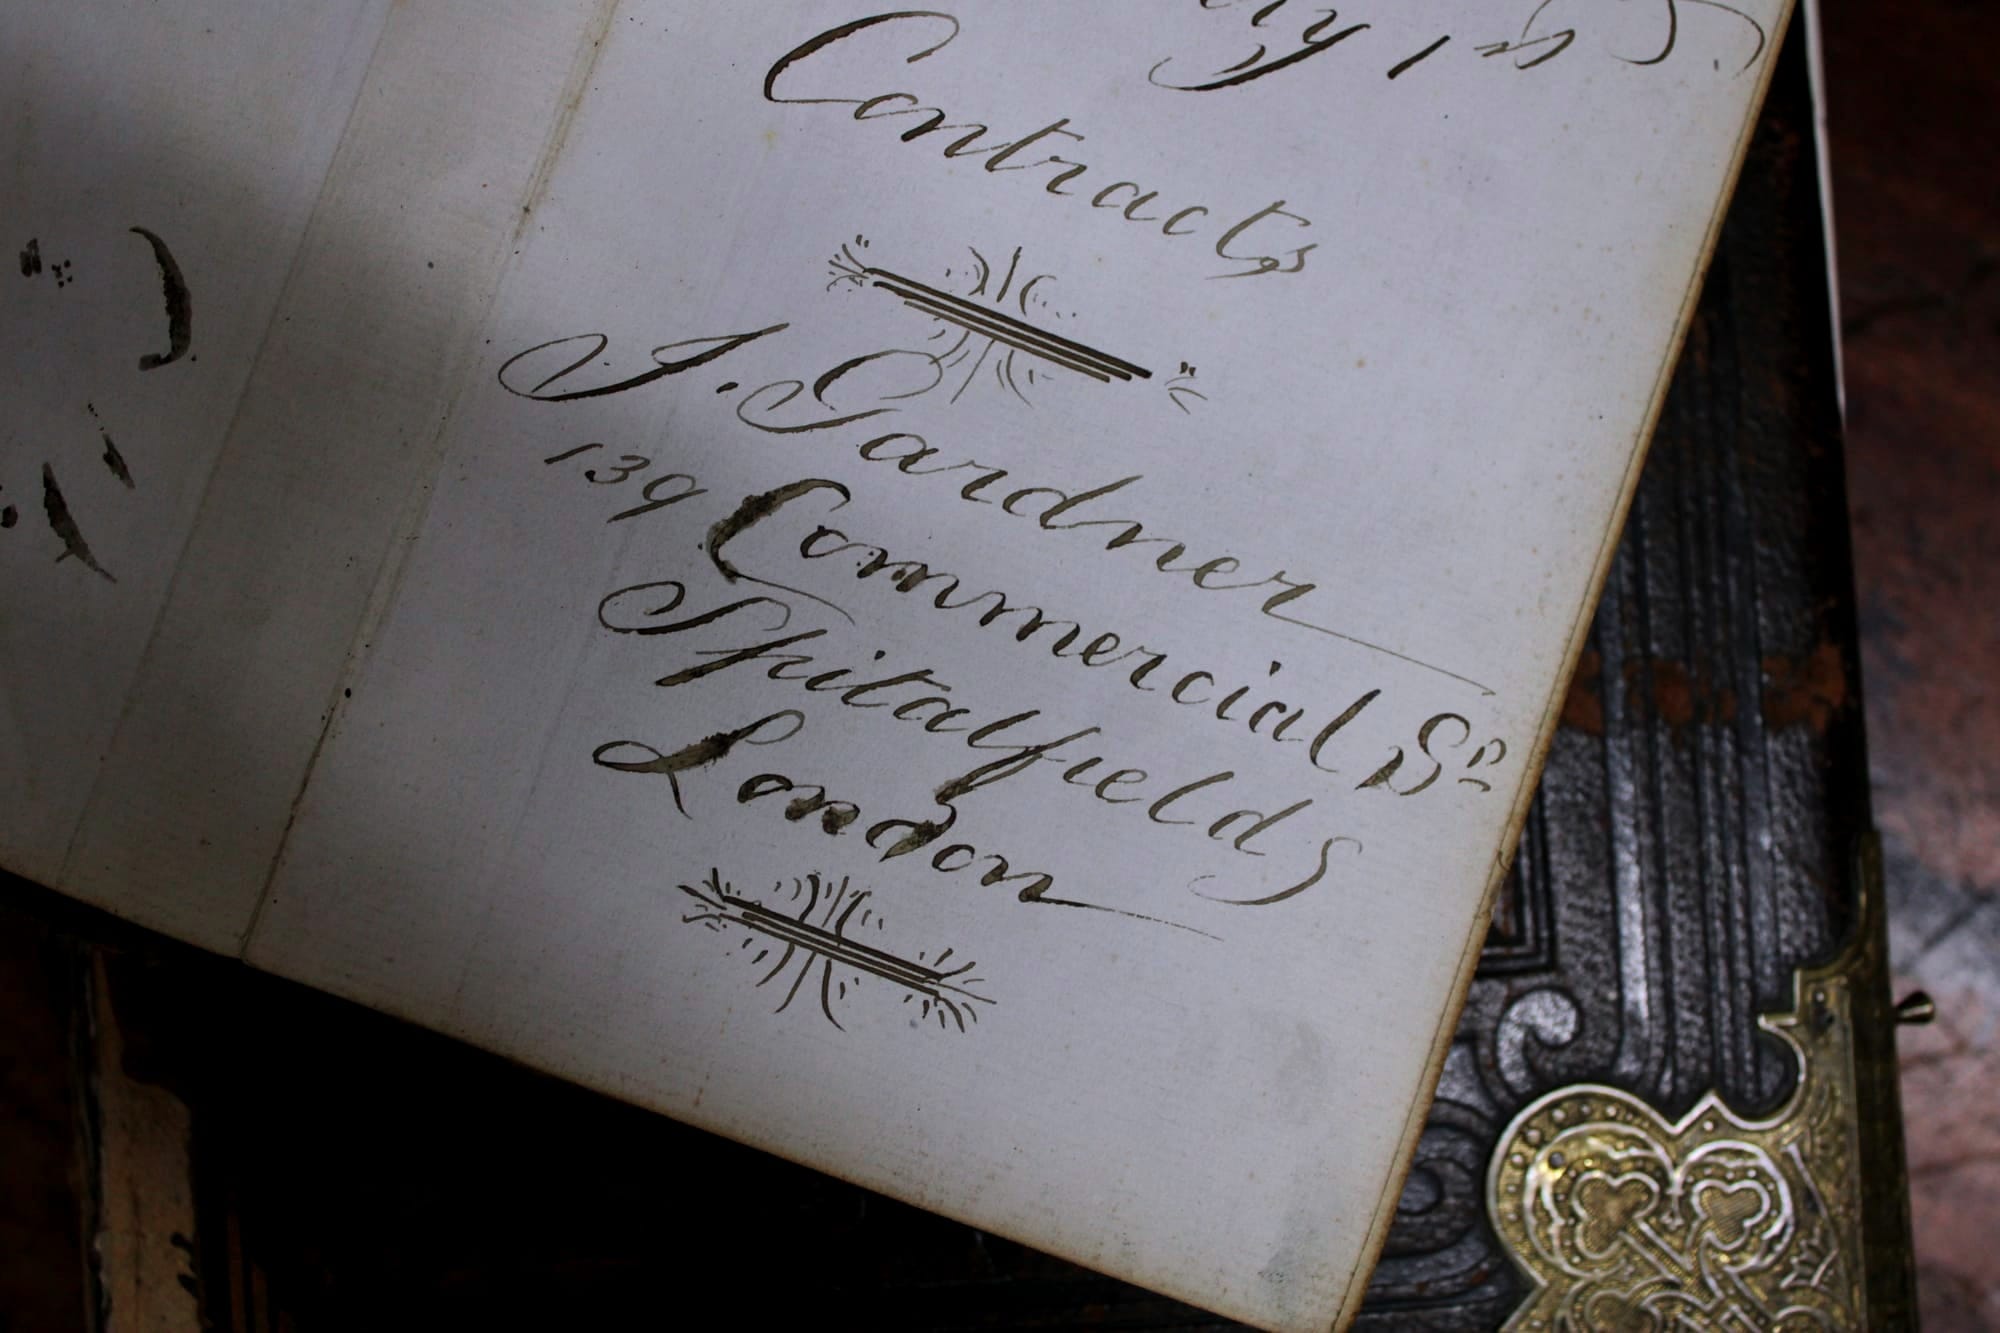 1st
Contracts
J. Gardner
139 Commercial St
Spitalfields
London